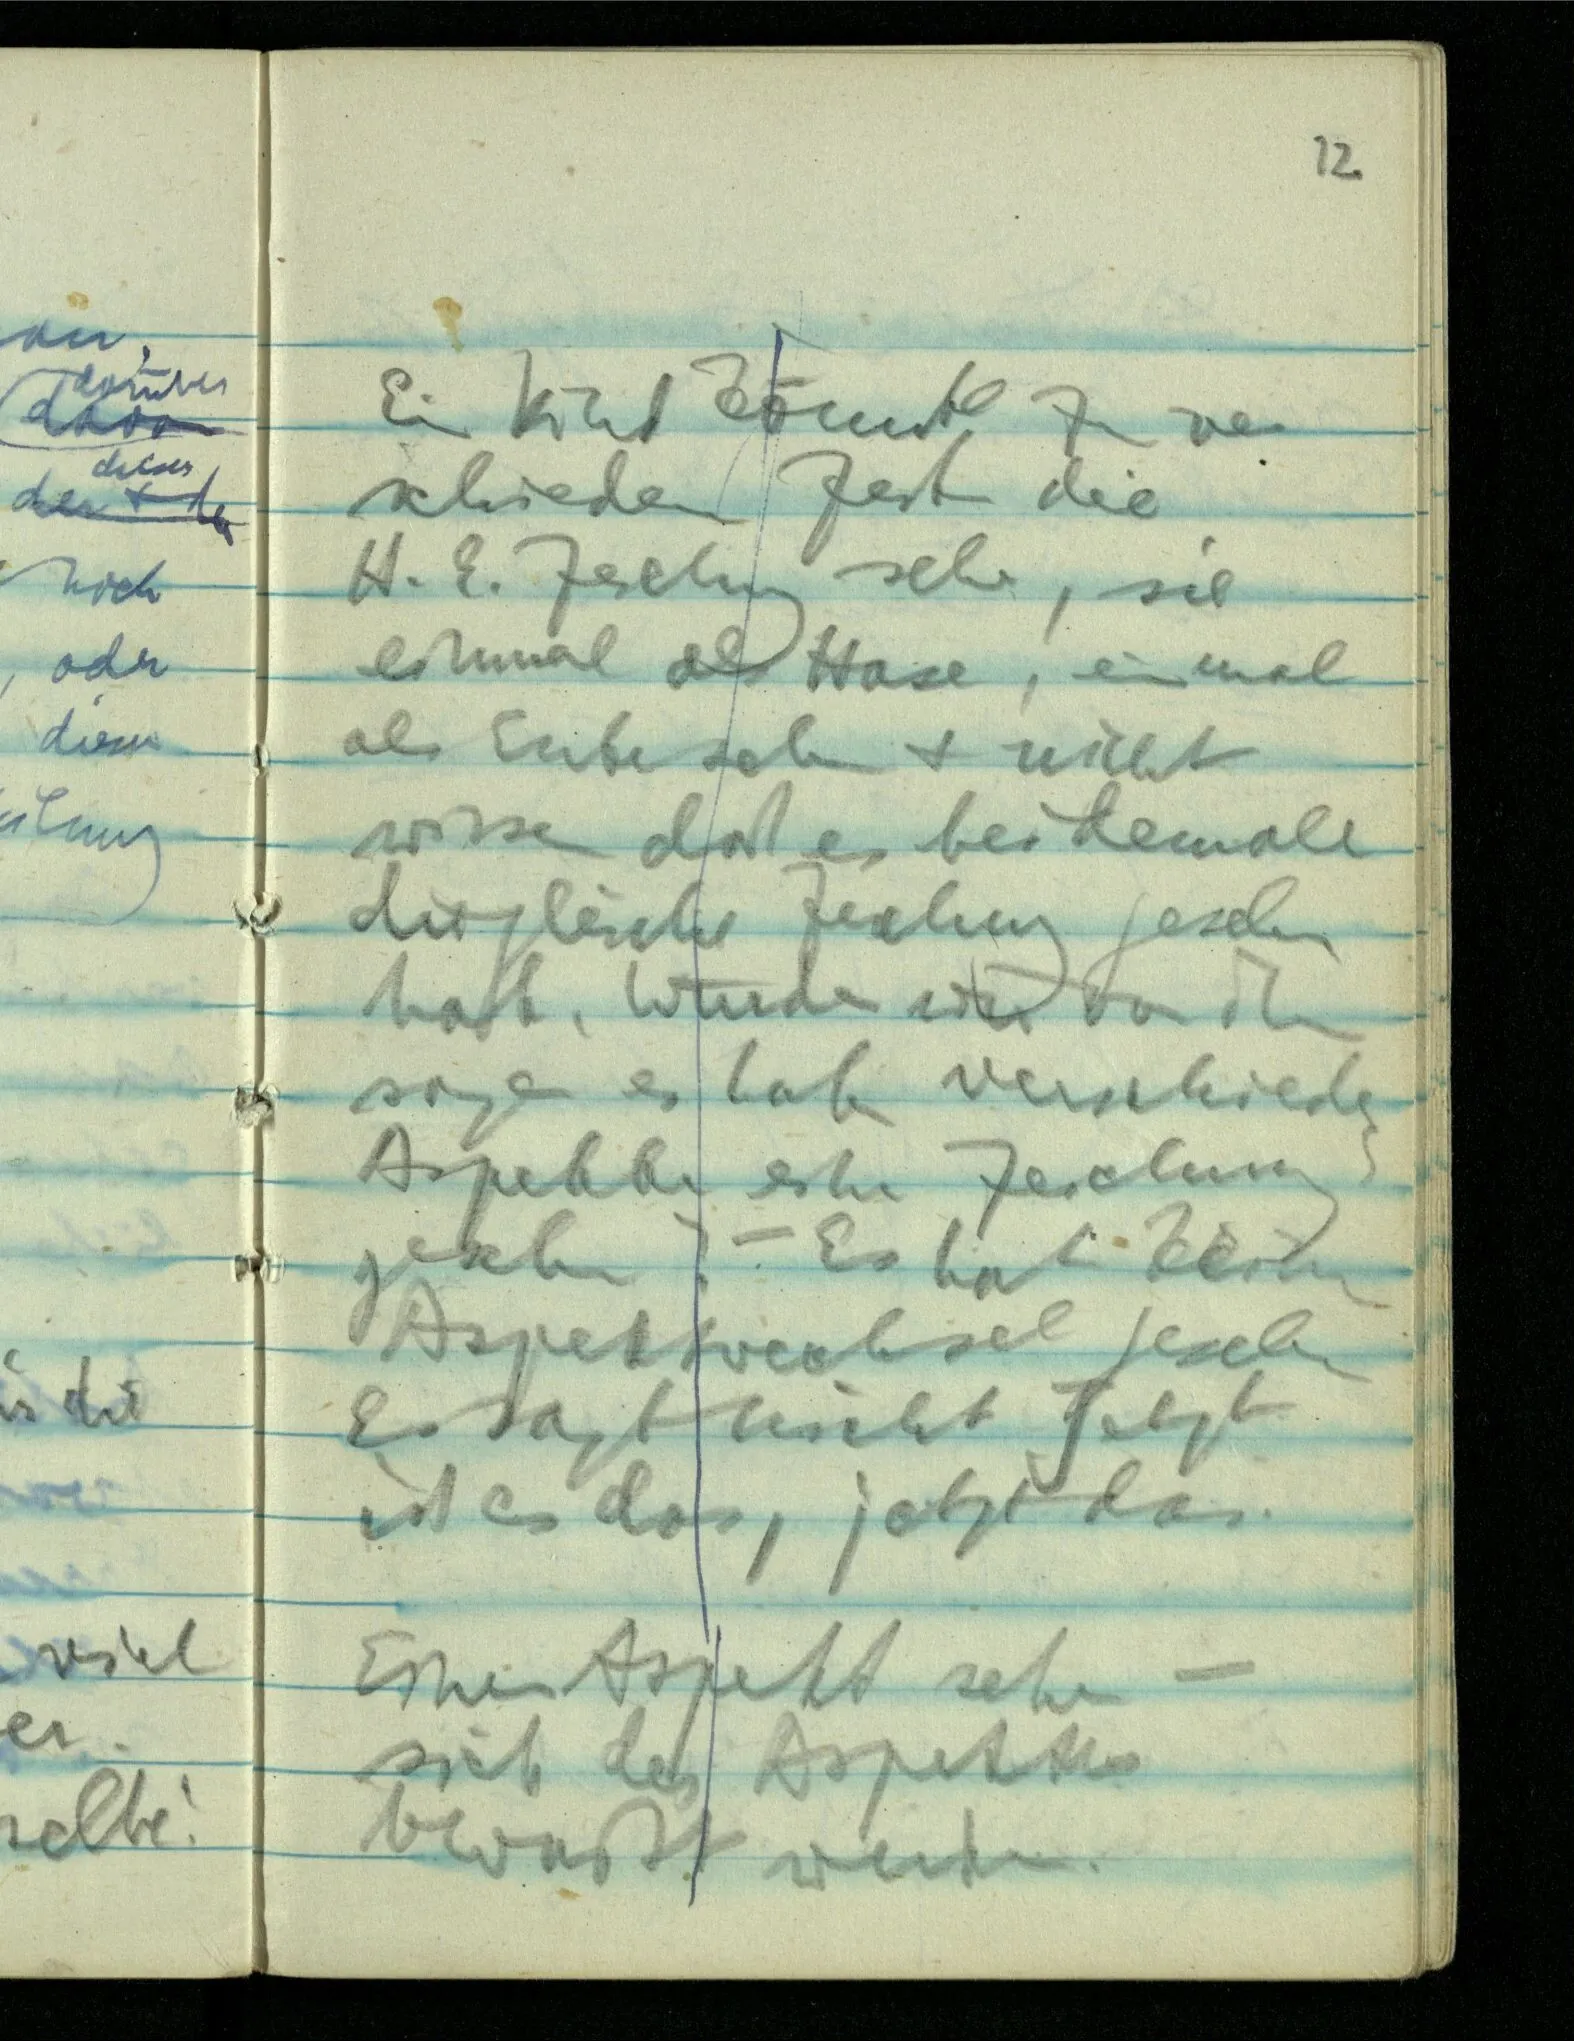 12.
an,
darüber
davon
dieses
der + der
noch
, oder
diesen
Ein Kind könnte zu ver
schieden Zeiten die
H. E. Zeichnung sehen, sie
einmal als Hase, einmal
als Ente sehen + nicht
wissen daß es beidemale
die gleiche Zeichnung gesehen
hat. Würden wir von ihm
sagen es habe verschiedene
Aspekte einer Zeichnung
gesehen? – Es hat keinen
Aspektwechsel gesehen
Es sagt nicht Jetzt
ist es das, jetzt das.
die
viel
er.
selbe!
Einen Aspekt sehen –
sich des Aspektes
bewußt werden.